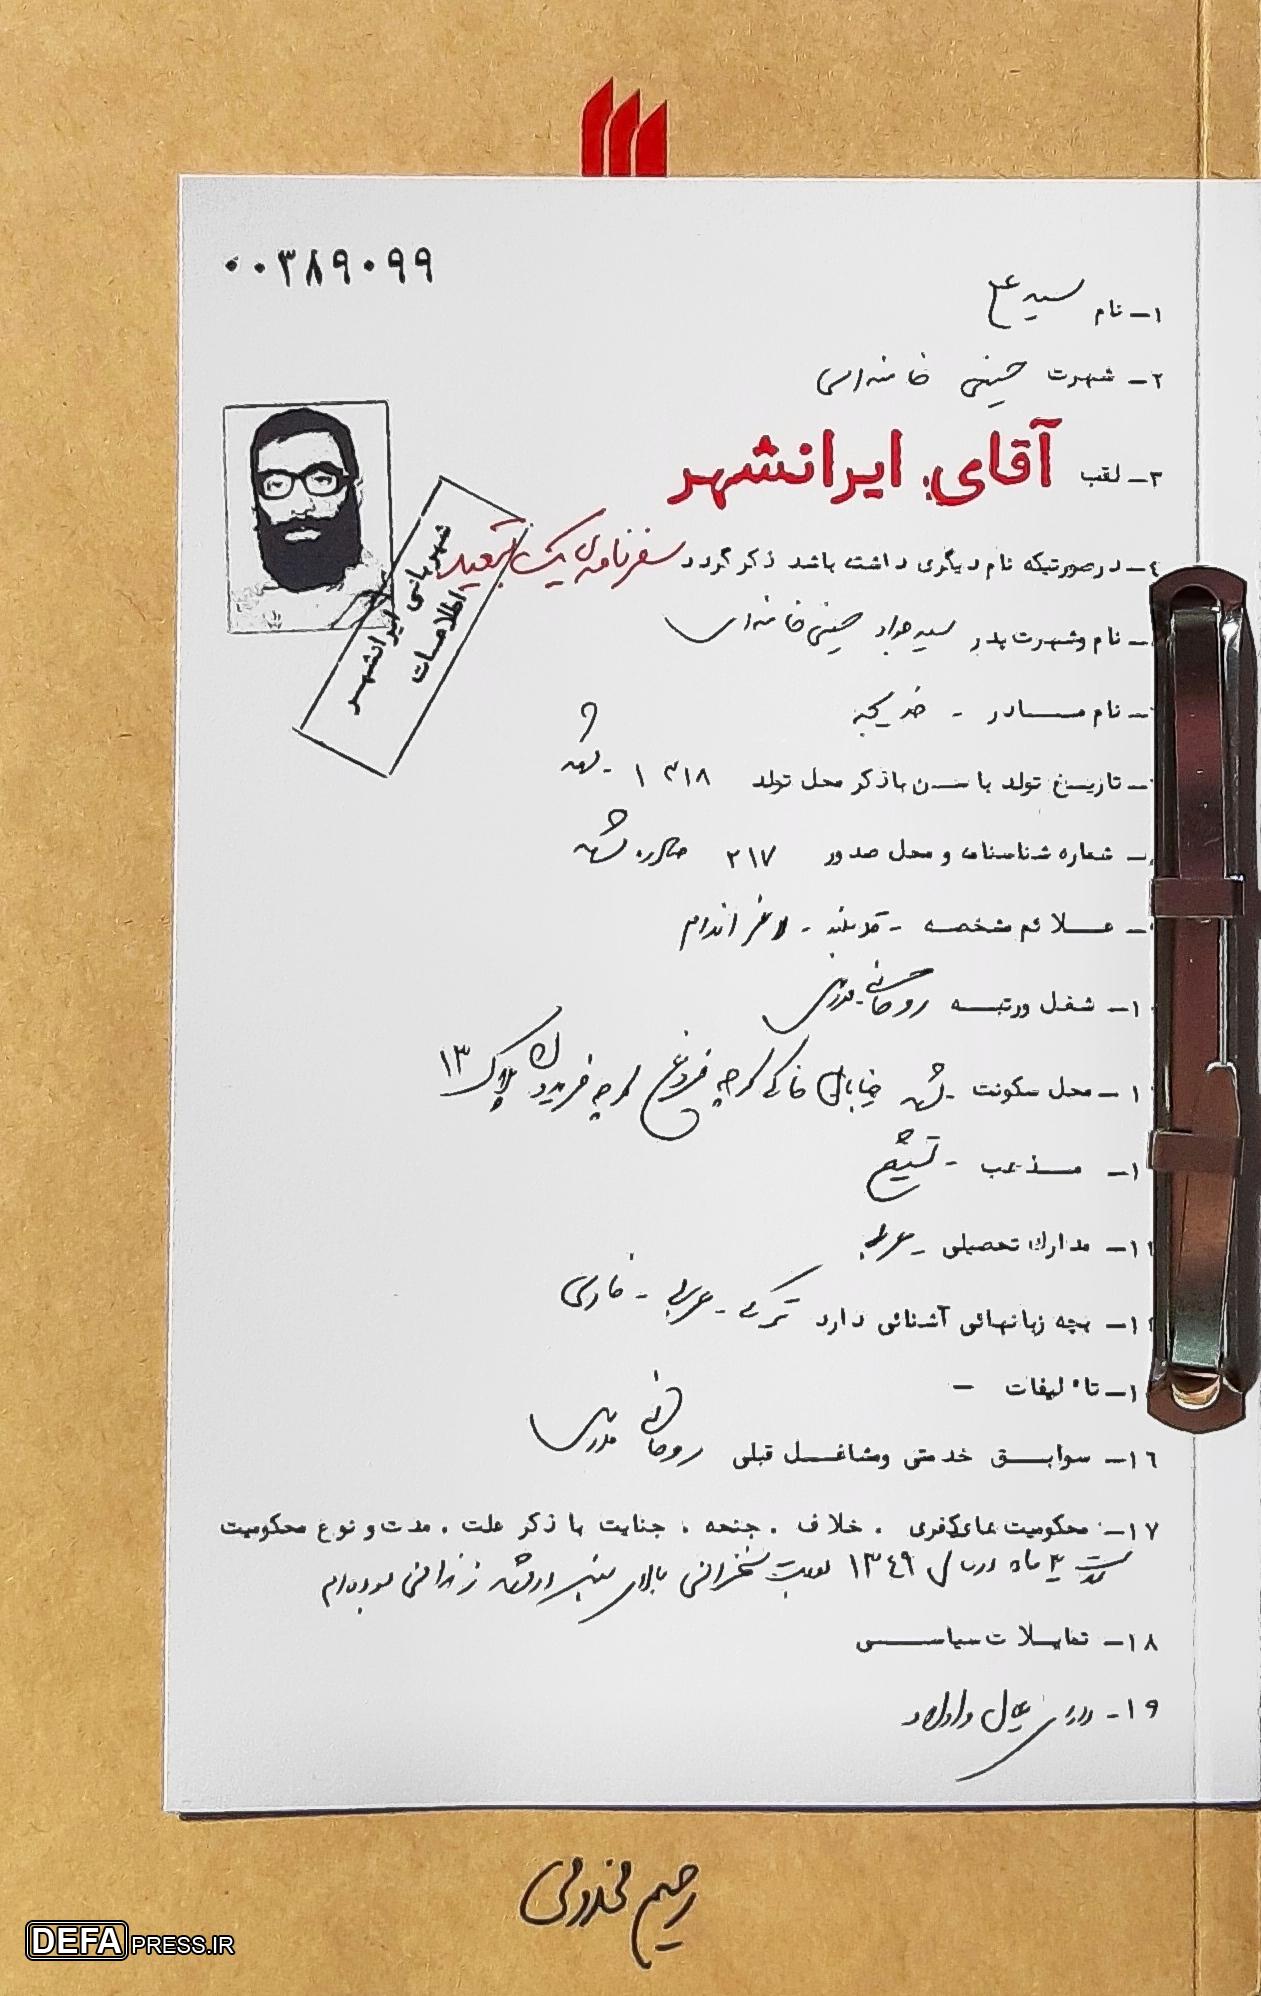 ۰۰۳۸۹۰۹۹
۱- نام سید علی
۲- شهرت حسینی خامنه‌ای
۳- لقب آقای ایرانشهر
٤- درصورتیکه نام دیگری داشته باشد ذکر گردد سفرنامه‌ی یک تبعید
شهربانی ایرانشهر
اطلاعات
- نام وشهرت پدر سید جواد حسینی خامنه‌ای
- نام مادر - خدیجه
- تاریخ تولد با سن باذکر محل تولد ۱۳۱۸ - مشهد
- شماره شناسنامه و محل صدور ۲۱۷ صادره مشهد
- علائم مشخصه - قد بلند - لاغر اندام
۱- شغل ورتبه روحانی - مدرس
۱- محل سکونت - مشهد خیابان خاکی کوچه فروغ کوچه فریدون پلاک ۱۳
۱- مذهب - تشیع
۱۱- مدارک تحصیلی - عربی
۱٤- بچه زبانهائی آشنائی دارد ترکی - عربی - فارسی
۱- تاٴلیفات -
۱٦- سوابق خدمتی ومشاغل قبلی روحانی مدرس
۱۷- محکومیت های کیفری ، خلاف ، جنحه ، جنایت با ذکر علت ، مدت و نوع محکومیت
مدت ۴ ماه در سال ۱۳٤۹ بعلت سخنرانی بالای منبر در مشهد زندانی بوده‌ام
۱۸- تمایلات سیاسی
۱۹- دارای عیال و اولاد
رحیم مخدومی
DEFA PRESS.IR